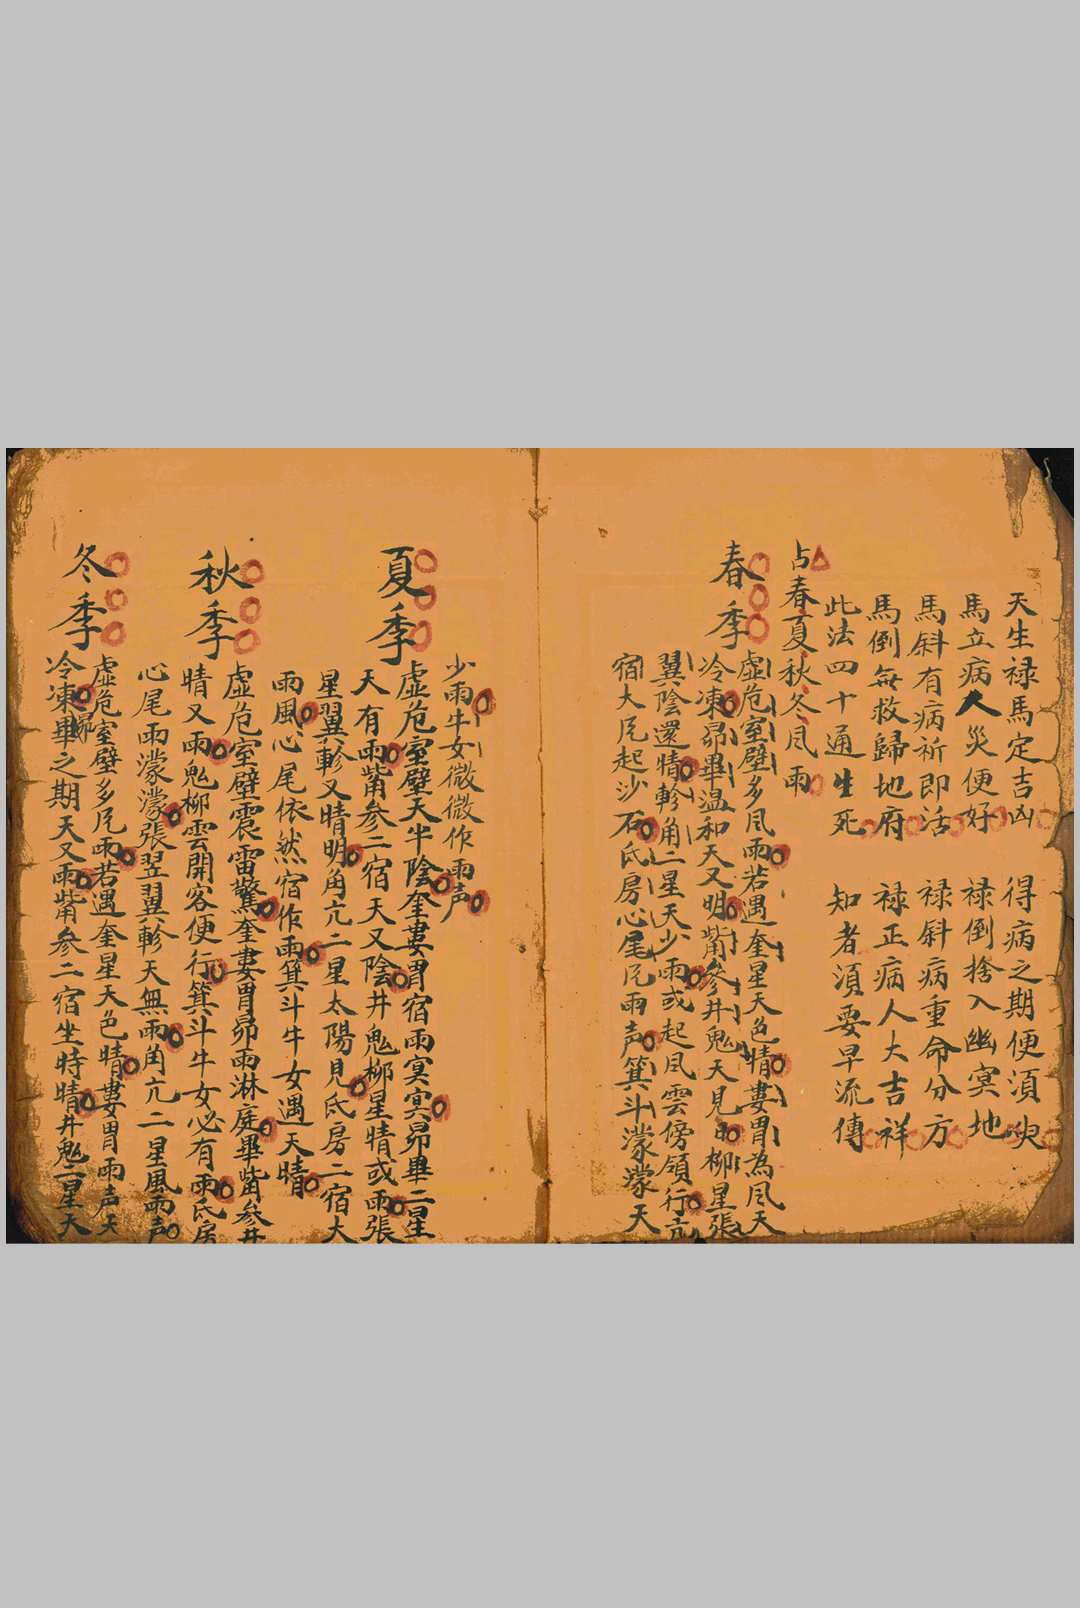 天生禄馬定吉凶　得病之期便湏
馬立病人災便好　禄倒捨入幽冥地
馬斜有病祈即活　禄斜病重命分方
馬倒無救歸地府　禄正病人大吉祥
此法四十通生死　知者湏要早流傳
占春夏秋冬凨雨
春季
虚危室壁多凨雨若遇奎星天色晴婁胃為凨天
冷凍昴畢温和天又明觜參井鬼天見日柳星張
翼陰還晴軫角二星天少雨或起凨雲傍嶺行亢
宿大凨起沙石氐房心尾凨雨声箕斗濛濛天
少雨牛女微微作雨声
夏季
虚危室壁天半陰奎婁胃宿雨冥冥昴畢二星
天有雨觜参二宿天又陰井鬼柳星晴或雨張
星翼軫又晴明角亢二星太陽見氐房二宿大
雨風心尾依然宿作雨箕斗牛女遇天晴
秋季
虚危室壁震雷驚奎婁胃昴雨淋庭畢觜参井
晴又雨鬼柳雲開客便行箕斗牛女必有雨氐房
心尾雨濛濛張翌翼軫天無雨角亢二星風雨声
冬季
虚危室壁多凨雨若遇奎星天色晴婁胃雨声天
冷凍昴畢之期天又雨觜参二宿坐時晴井鬼二星天